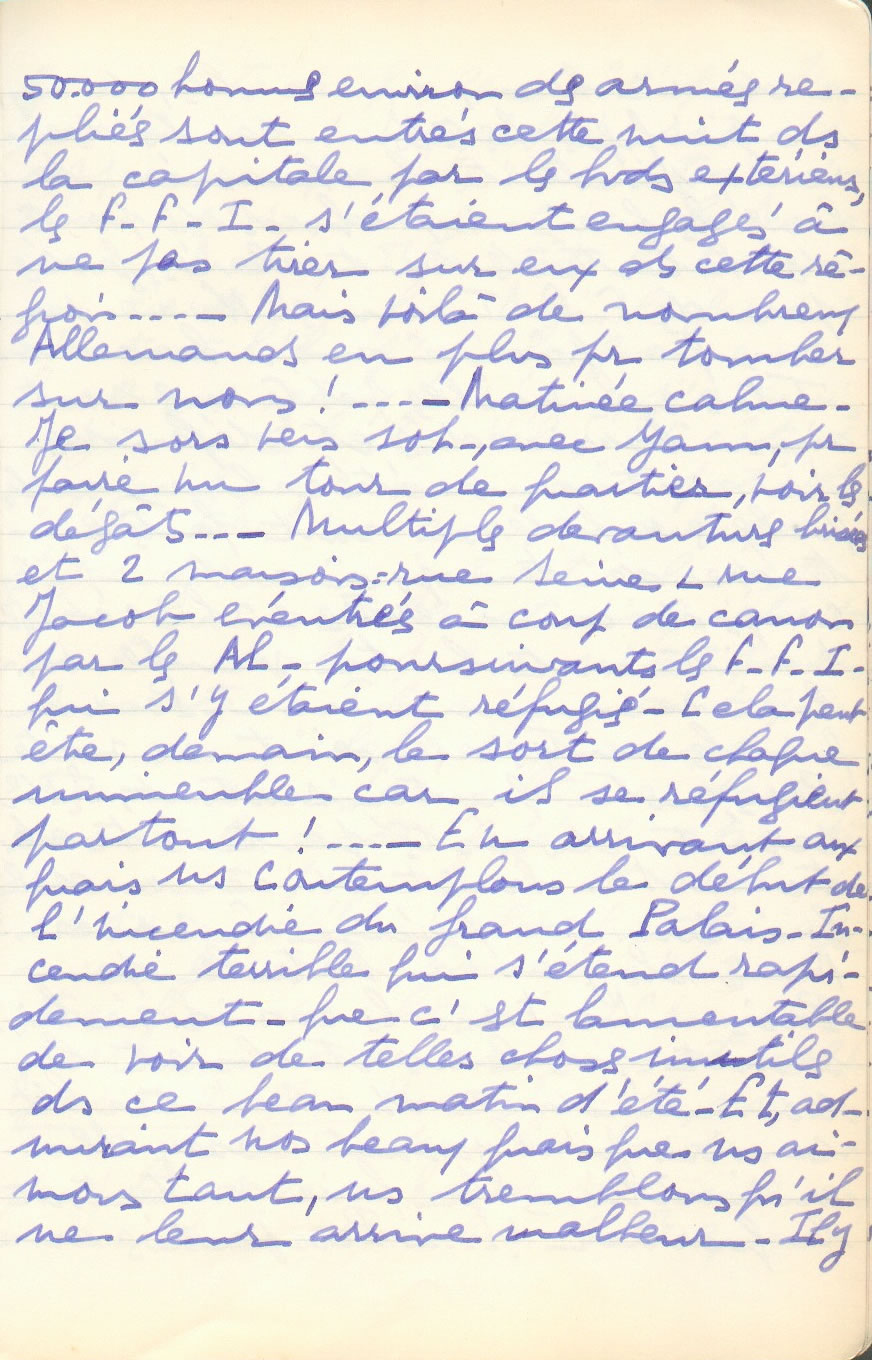 50.000 hommes environ des armées re-
pliées sont entrés cette nuit ds
la capitale par les bvds extérieurs,
les F-F-I- s'étaient engagés à
ne pas tirer sur eux ds cette ré-
gion---- Mais voilà de nombreux
Allemands en plus pr tomber
sur nous! ---- Matinée calme-
Je sors vers 10h-, avec Yann, pr
faire un tour de quartier, voir les
dégâts--- Multiples devantures brisées
et 2 maisons: rue Seine & rue
Jacob éventrées à coup de canon
par les Al- poursuivants les F-F-I-
qui s'y étaient réfugiés- Cela peut
être, demain, le sort de chaque
immeuble car ils se réfugient
partout! ---- En arrivant aux
quais ns contemplons le début de
l'incendie du grand Palais- In-
cendie terrible qui s'étend rapi-
dement- que c'est lamentable
de voir de telles choses inutiles
ds ce beau matin d'été- Et, ad-
mirant nos beaux quais que ns ai-
mons tant, ns tremblons qu'il
ne leur arrive malheur- Il y